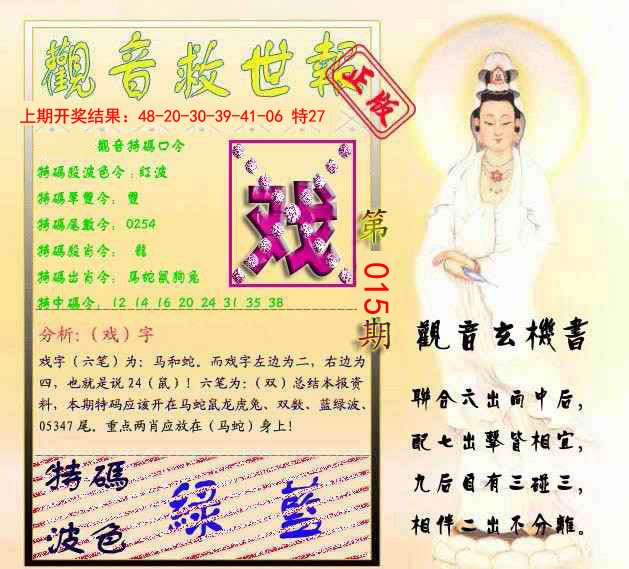 觀音救世報
正版
上期开奖结果：48-20-30-39-41-06 特27
觀音特碼口令
特碼殺波色令：紅波
特碼單雙令：雙
特碼尾數令：0254
特碼殺肖令：龍
特碼出肖令：馬蛇鼠狗兔
特中碼令：12 14 16 20 24 31 35 38
戏
第015期
分析:（戏）字
戏字（六笔）为：马和蛇。而戏字左边为二，右边为
四，也就是说24（鼠）！六笔为：（双）总结本报资
料，本期特码应该开在马蛇鼠龙虎兔、双数、蓝绿波、
05347尾。重点两肖应放在（马蛇）身上！
特碼
波色
綠 藍
觀音玄機書
聯合六出而中后，
配七出擊皆相宜，
九后目有三碰三，
相伴二出不分離。